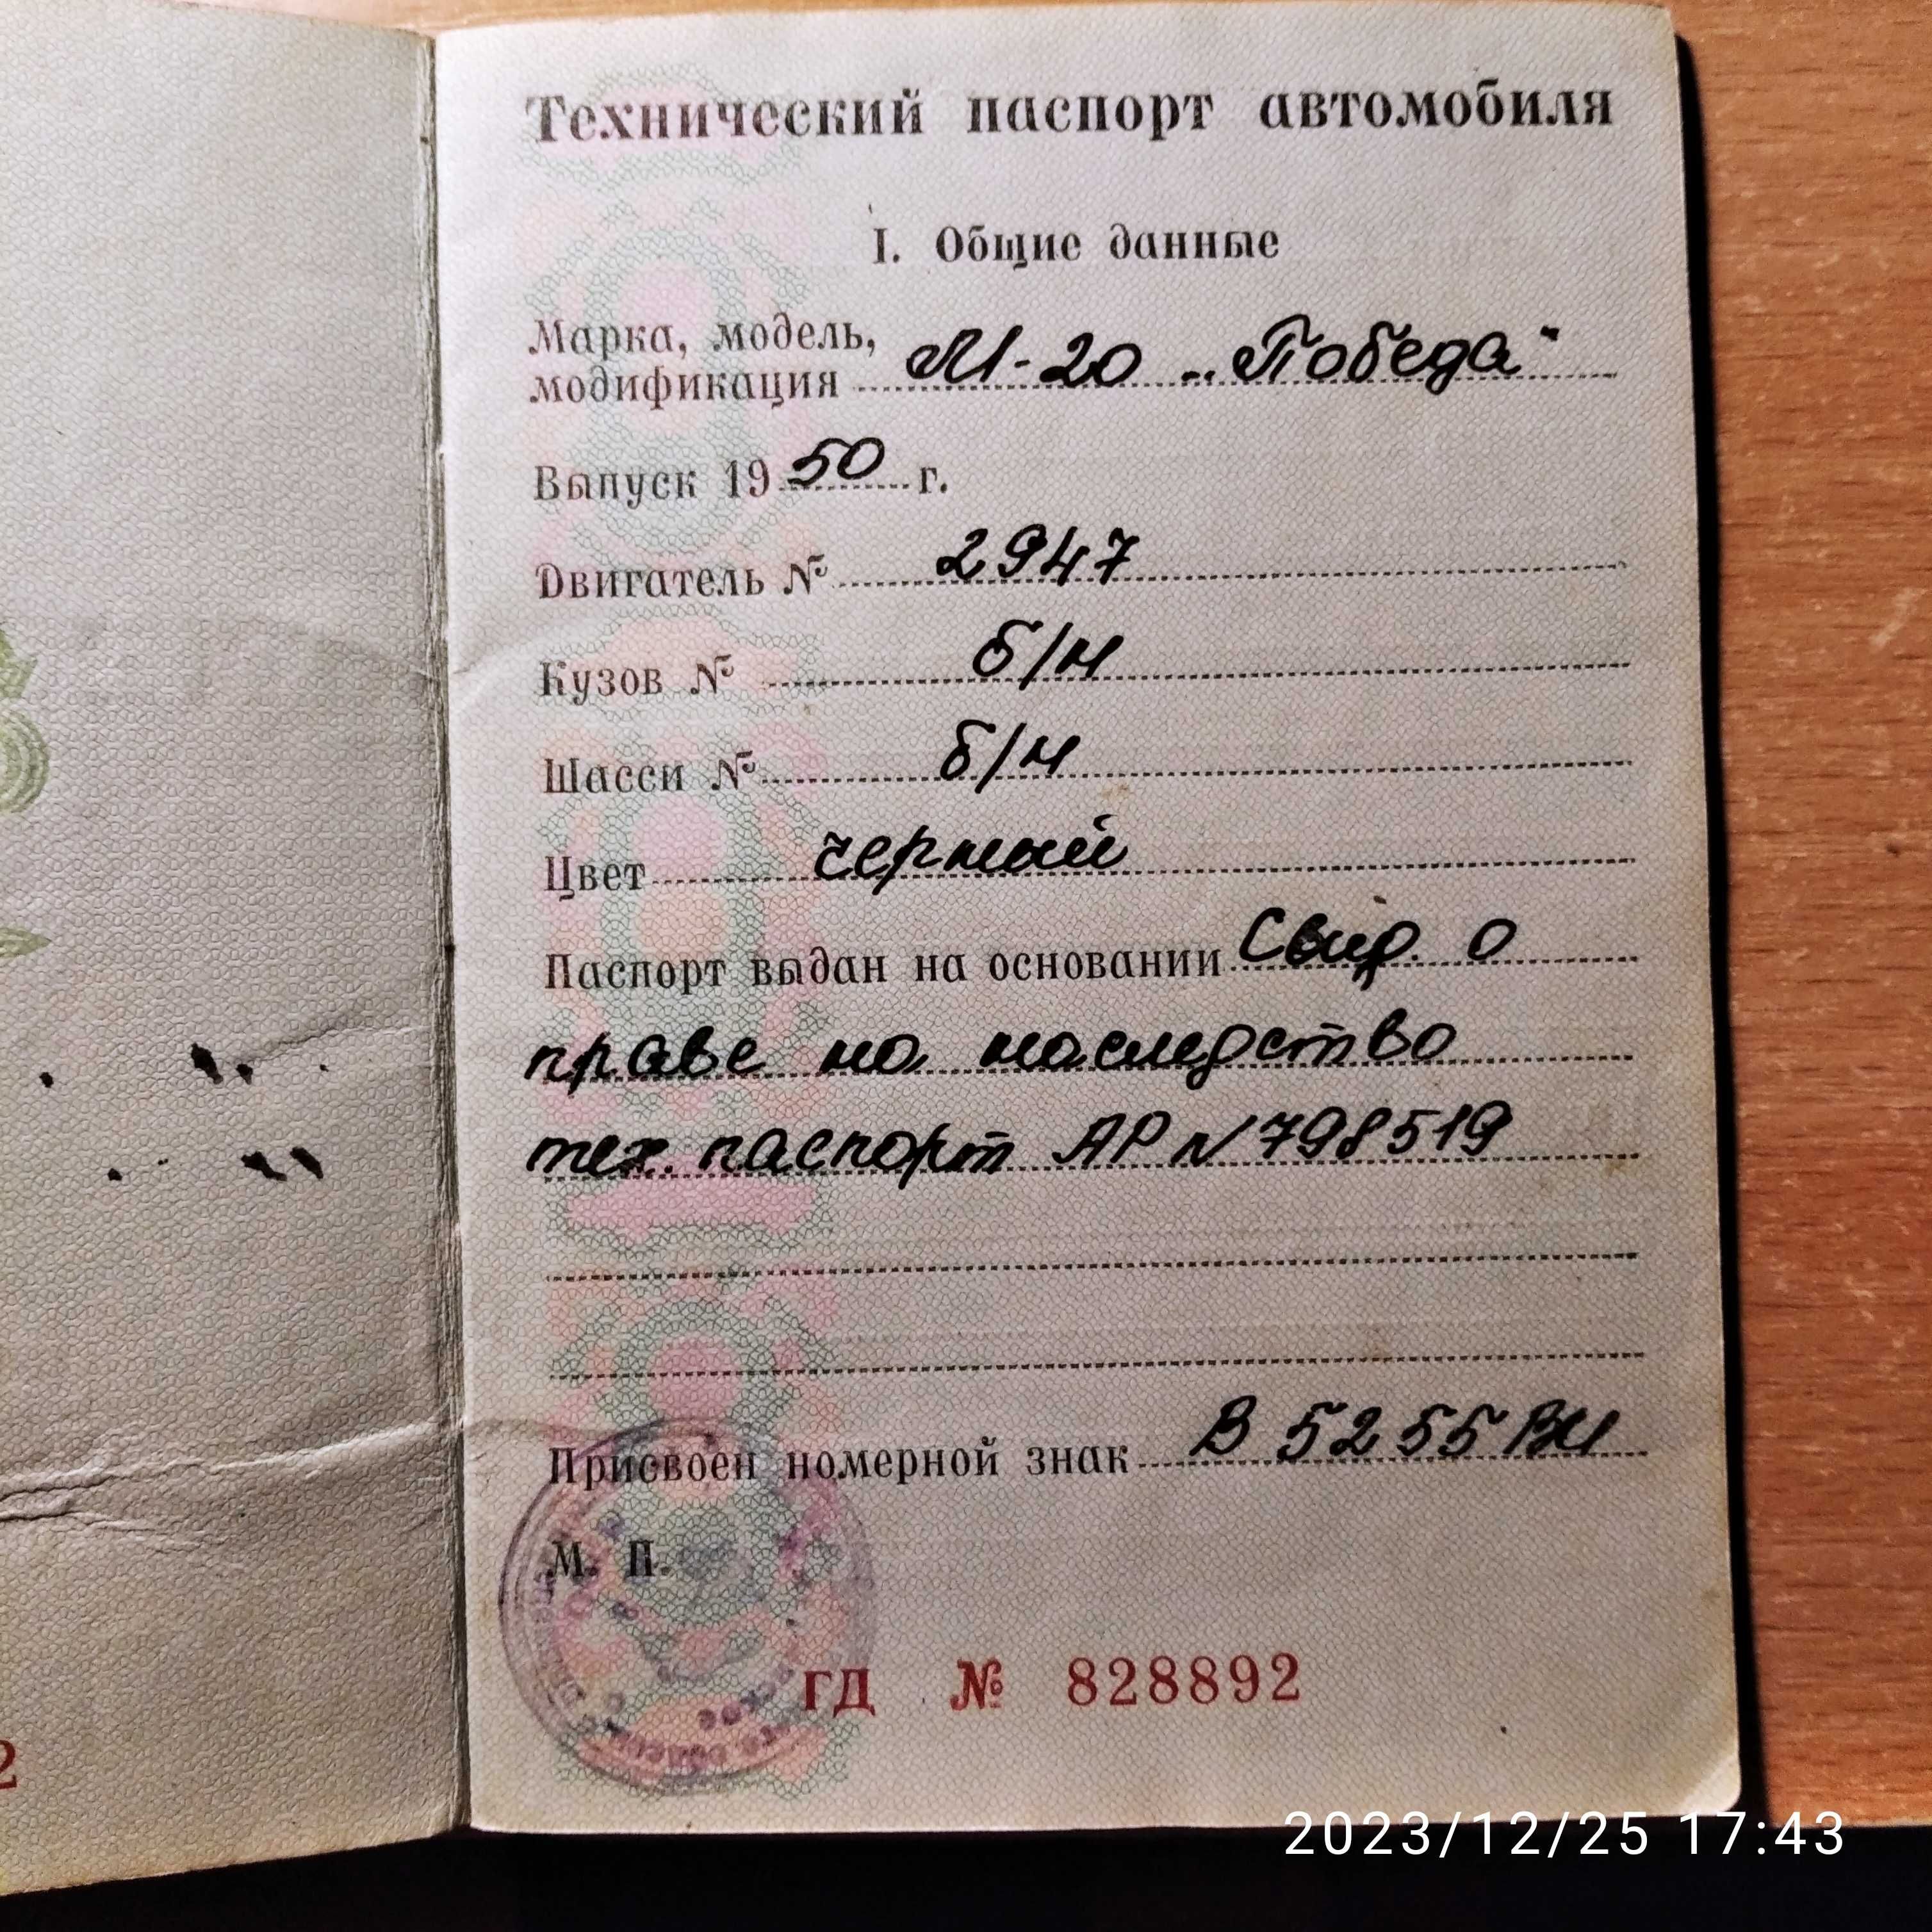 Технический паспорт автомобиля
I. Общие данные
Марка, модель,
модификация М-20 „Победа"
Выпуск 1950 г.
Двигатель № 2947
Кузов № б/н
Шасси № б/н
Цвет черный
Паспорт выдан на основании Свид. о
праве на наследство
тех. паспорт АР N 798519
Присвоен номерной знак В 5255 ВИ
М. П.
ГД № 828892
2
2023/12/25 17:43